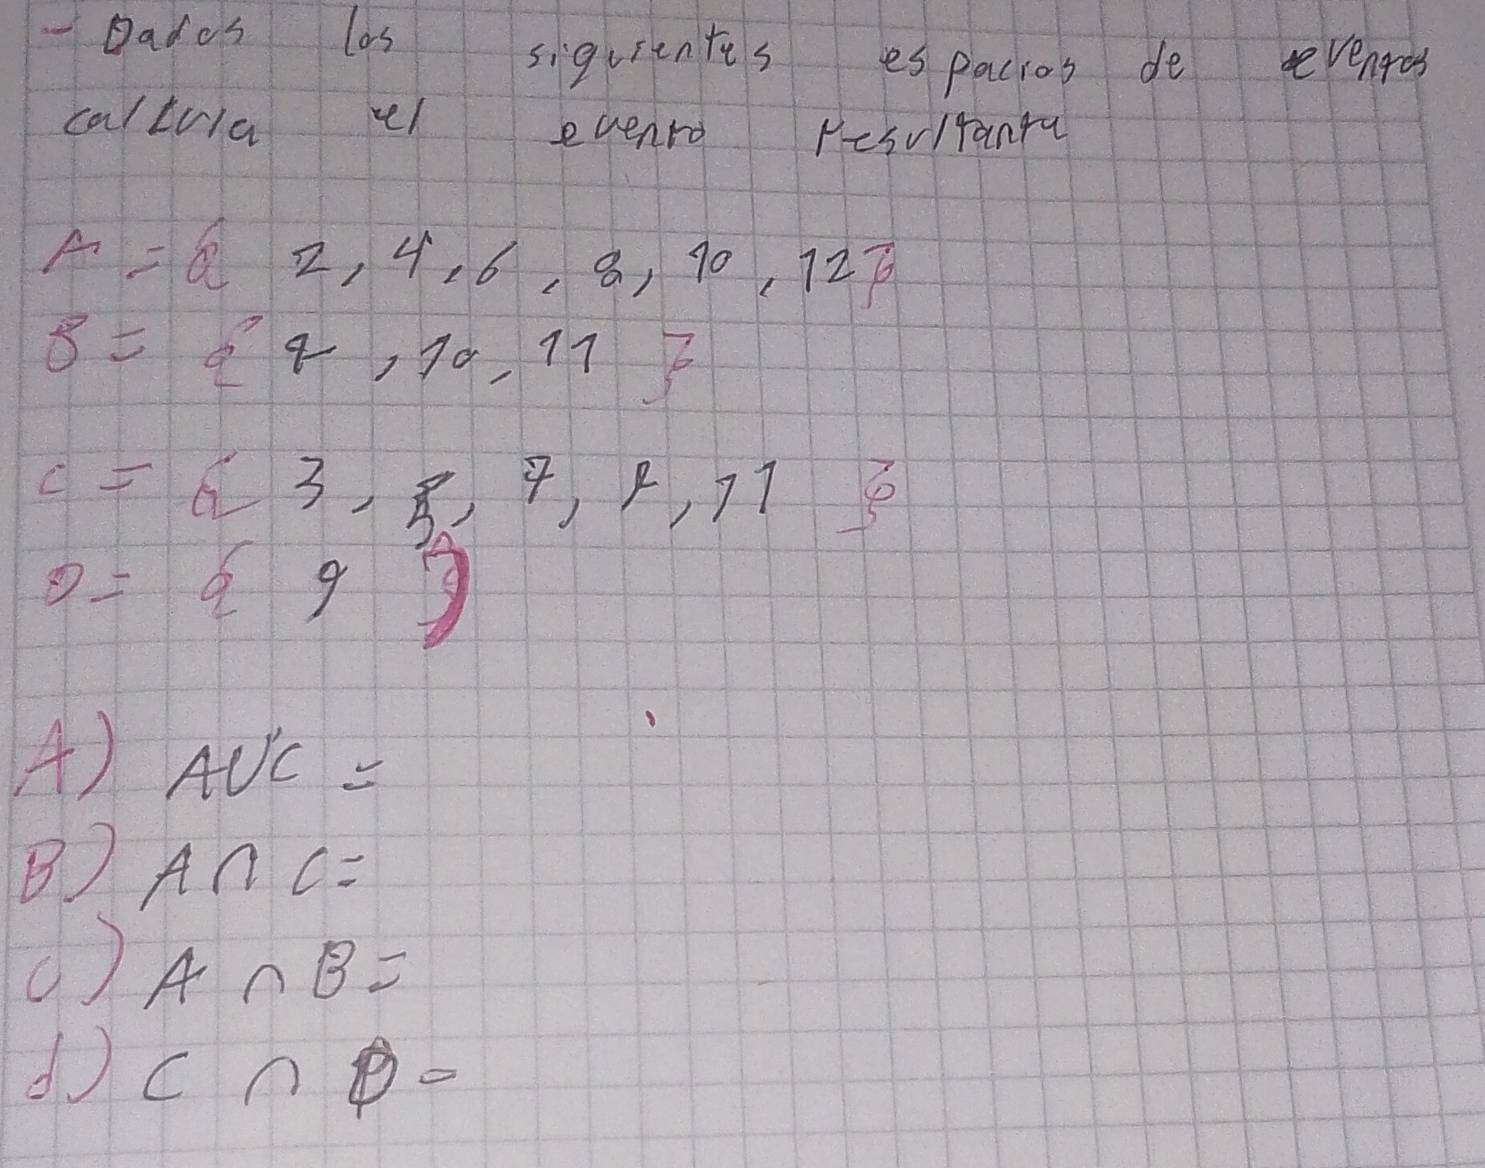 - Dados los siguientes espacios de eventos
calcula el evento resultante
A = { 2, 4, 6, 8, 10, 12}
B = { , 10, 11 }
C = { 3, 5, 7, , 11 }
D = { 9 }
A) A∪C =
B) A ∩ C =
C) A ∩ B =
d) C ∩ D =